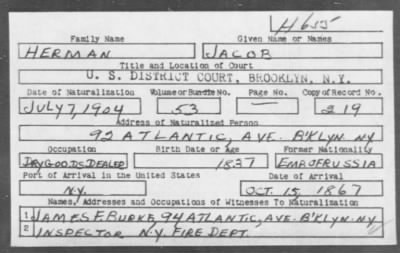 H655
Family Name Given Name or Names
HERMAN JACOB
Title and Location of Court
U. S. DISTRICT COURT, BROOKLYN, N.Y.
Date of Naturalization Volume or Bundle No. Page No. Copy of Record No.
JULY 7, 1904 53 — 219
Address of Naturalized Person
92 ATLANTIC, AVE. B'KLYN. NY
Occupation Birth Date or Age Former Nationality
DRY GOODS DEALER 1837 EMP OF RUSSIA
Port of Arrival in the United States Date of Arrival
N.Y. OCT. 15, 1867
Names, Addresses and Occupations of Witnesses To Naturalization
1 JAMES F. BURKE, 94 ATLANTIC, AVE. B'KLYN. NY
2 INSPECTOR N.Y. FIRE DEPT.